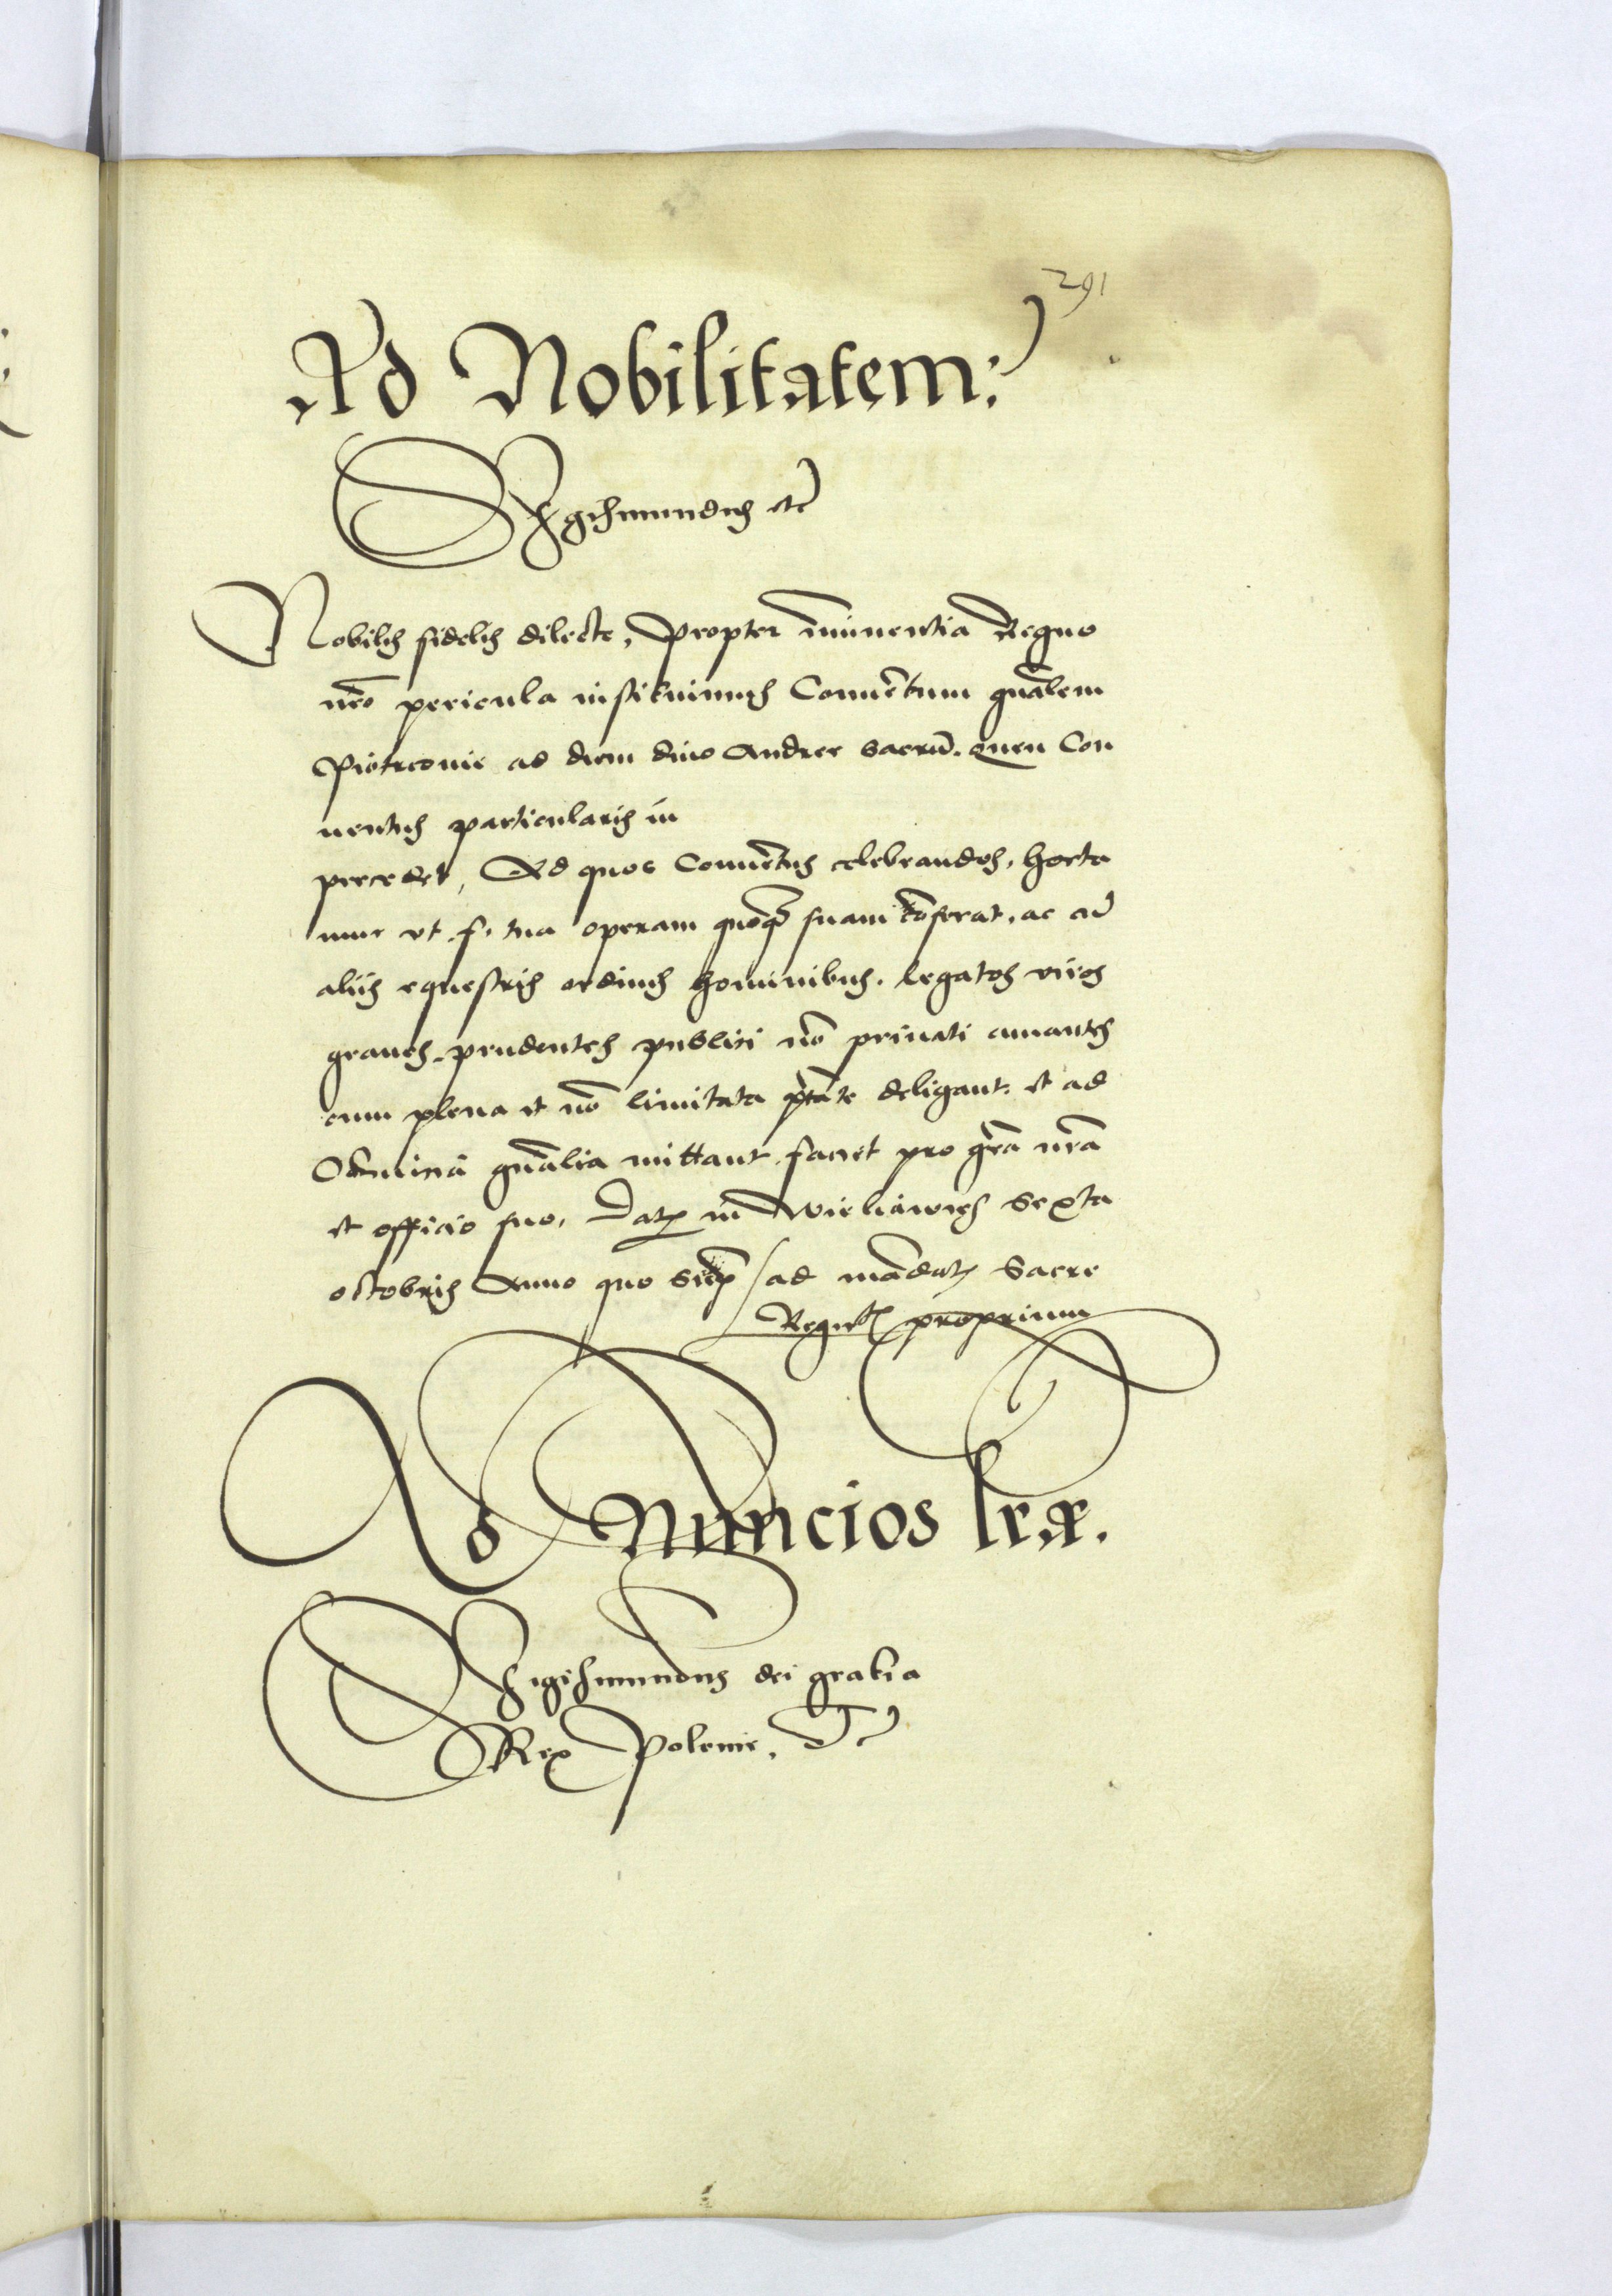 291
Ad Nobilitatem:
Sigismundus etc
Nobilis fidelis dilecte, Propter iminentia Regno
nro pericula instituimus Conuētum gnalem
Piotrcouie ad diem diuo Andree sacrū. quem Con
uentus particularis in
precedet, Ad quos Conuētus celebrandos, horta
mur vt f. tua operam quoqꝫ suam cōferat, ac cū
aliis equestris ordinis hominibus. legatos viros
graues prudentes publici nō priuati amantes
cum plena et nō limitata ptāte deligant. et ad
Comicia gnalia mittant facit pro gra nra
et officio suo, Datꝫ in Wieliawies Sexta
octobris Anno quo Supᵃ ad mādatꝫ Sacre
Regie proprium
Ad Nuncios trar.
Sigismundus dei gratia
Rex Polonie, etc